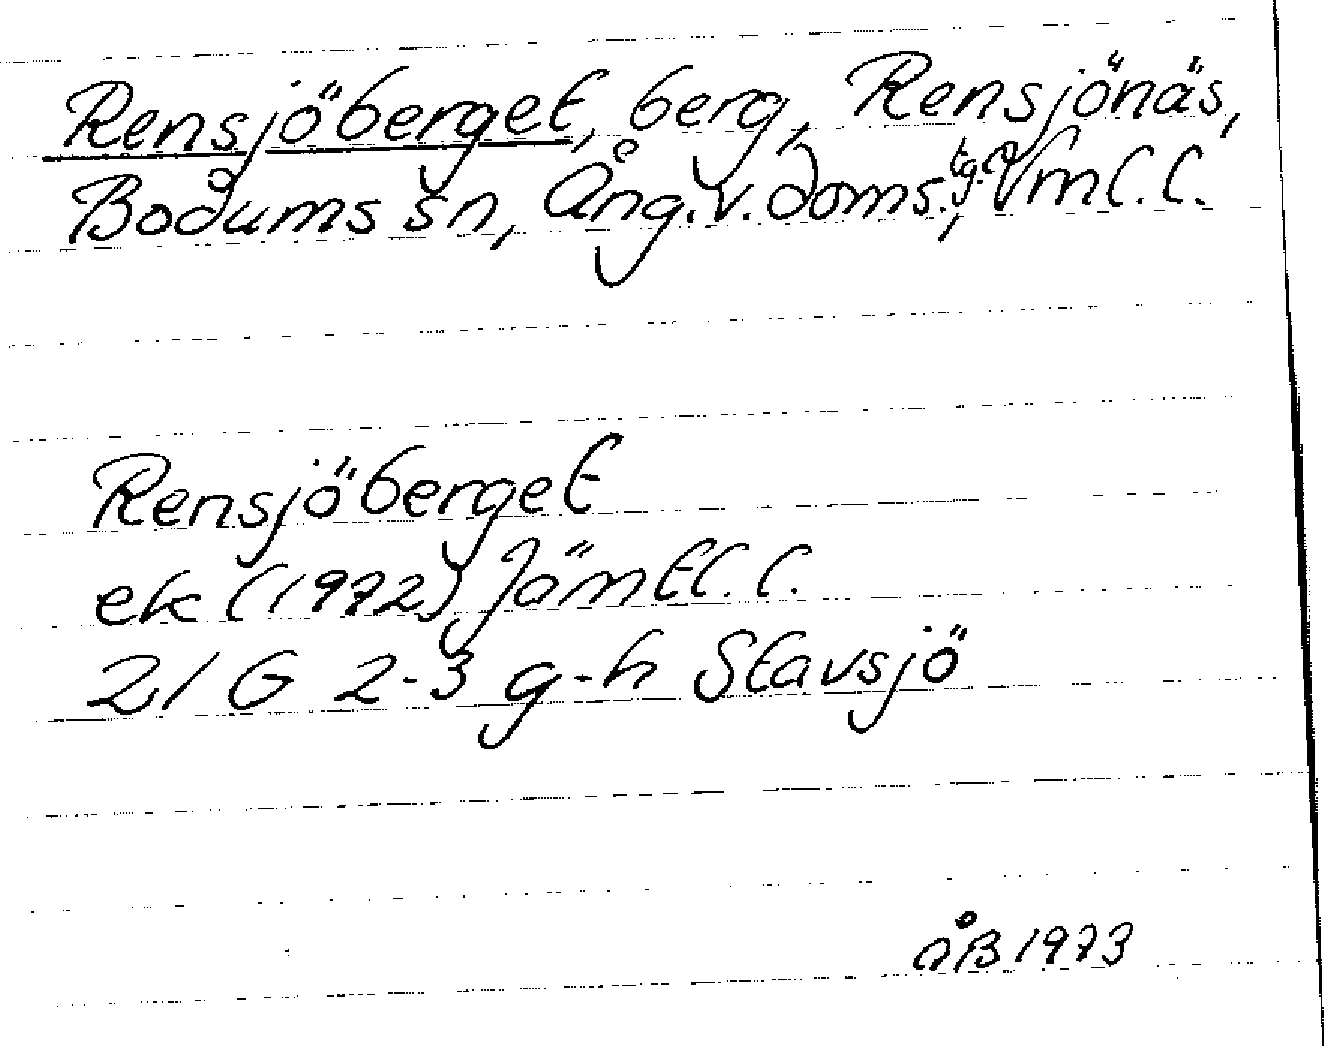 Rensjöberget, berg, Rensjönäs,
Bodums sn, Ång.v.doms.tg, Vml.l.
Rensjöberget
ek (1972) Jämtl.l.
21 G 2-3 g-h Stavsjö
ÅB 1973